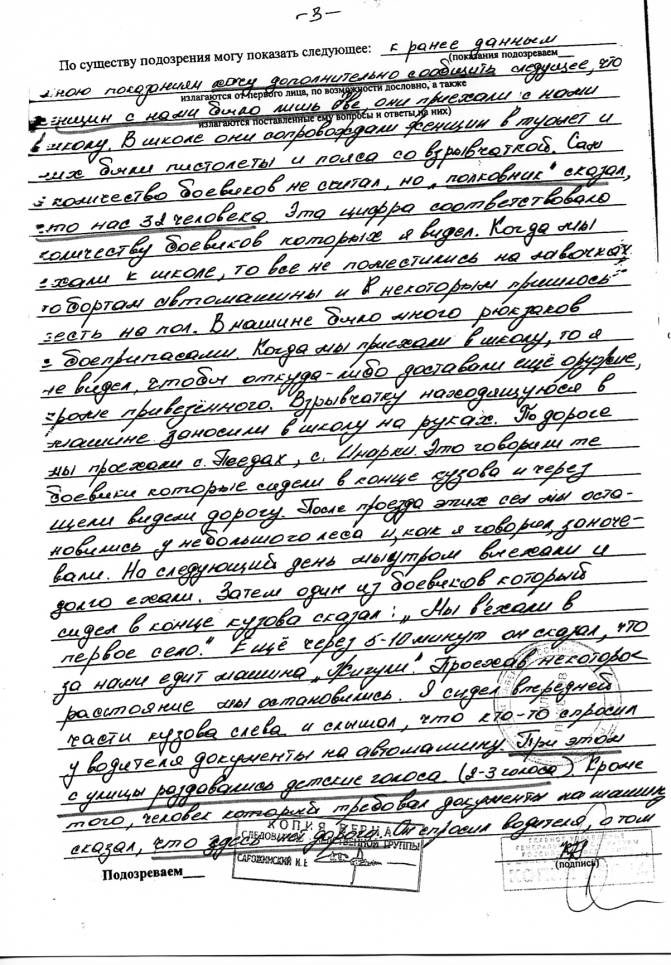 -3-
По существу подозрения могу показать следующее: к ранее данным
(показания подозреваем
мною показаниям хочу дополнительно сообщить следущее, что
излагаются от первого лица, по возможности дословно, а также
женщин с нами было лишь две, они приехали с нами
излагаются поставленные ему вопросы и ответы на них)
в школу. В школе они сопровождали женщин в туалет и
них были пистолеты и пояса со взрывчаткой. Сам
количество боевиков не считал, но „полковник" сказал,
что нас 32 человека. Эта цифра соответствовало
количеству боевиков которых я видел. Когда мы
ехали к школе, то все не поместились на лавочках
по бортам автомашины и некоторым пришлось
сесть на пол. В машине было много рюкзаков
с боеприпасами. Когда мы приехали в школу, то я
не видел, чтобы откуда-либо доставали ещё оружие,
кроме привезённого. Взрывчатку находящуюся в
машине заносили в школу на руках. По дороге
мы проехали с. Пседах, с. Инарки. Это говорили те
боевики которые сидели в конце кузова и через
щели видели дорогу. После проезда этих сел мы оста-
новились у небольшого леса и, как я говорил, заноче-
вали. На следующий день мы утром выехали и
долго ехали. Затем один из боевиков который
сидел в конце кузова сказал: „Мы въехали в
первое село." Ещё через 5-10 минут он сказал, что
за нами едит машина „Жигули". Проехав некоторое
расстояние мы остановились. Я сидел впередней
части кузова слева и слышал, что кто-то спросил
у водителя документы на автомашину. При этом
с улицы раздавались детские голоса (2-3 голоса). Кроме
того, человек который требовал документы на машину
сказал, что здесь дорога. Он спросил водителя, о том
КОПИЯ ВЕРНА
СЛЕДОВАТЕЛЬ СЛЕДСТВЕННОЙ ГРУППЫ
САГОЖИНСКИЙ И.Е
Подозреваем
(подпись)